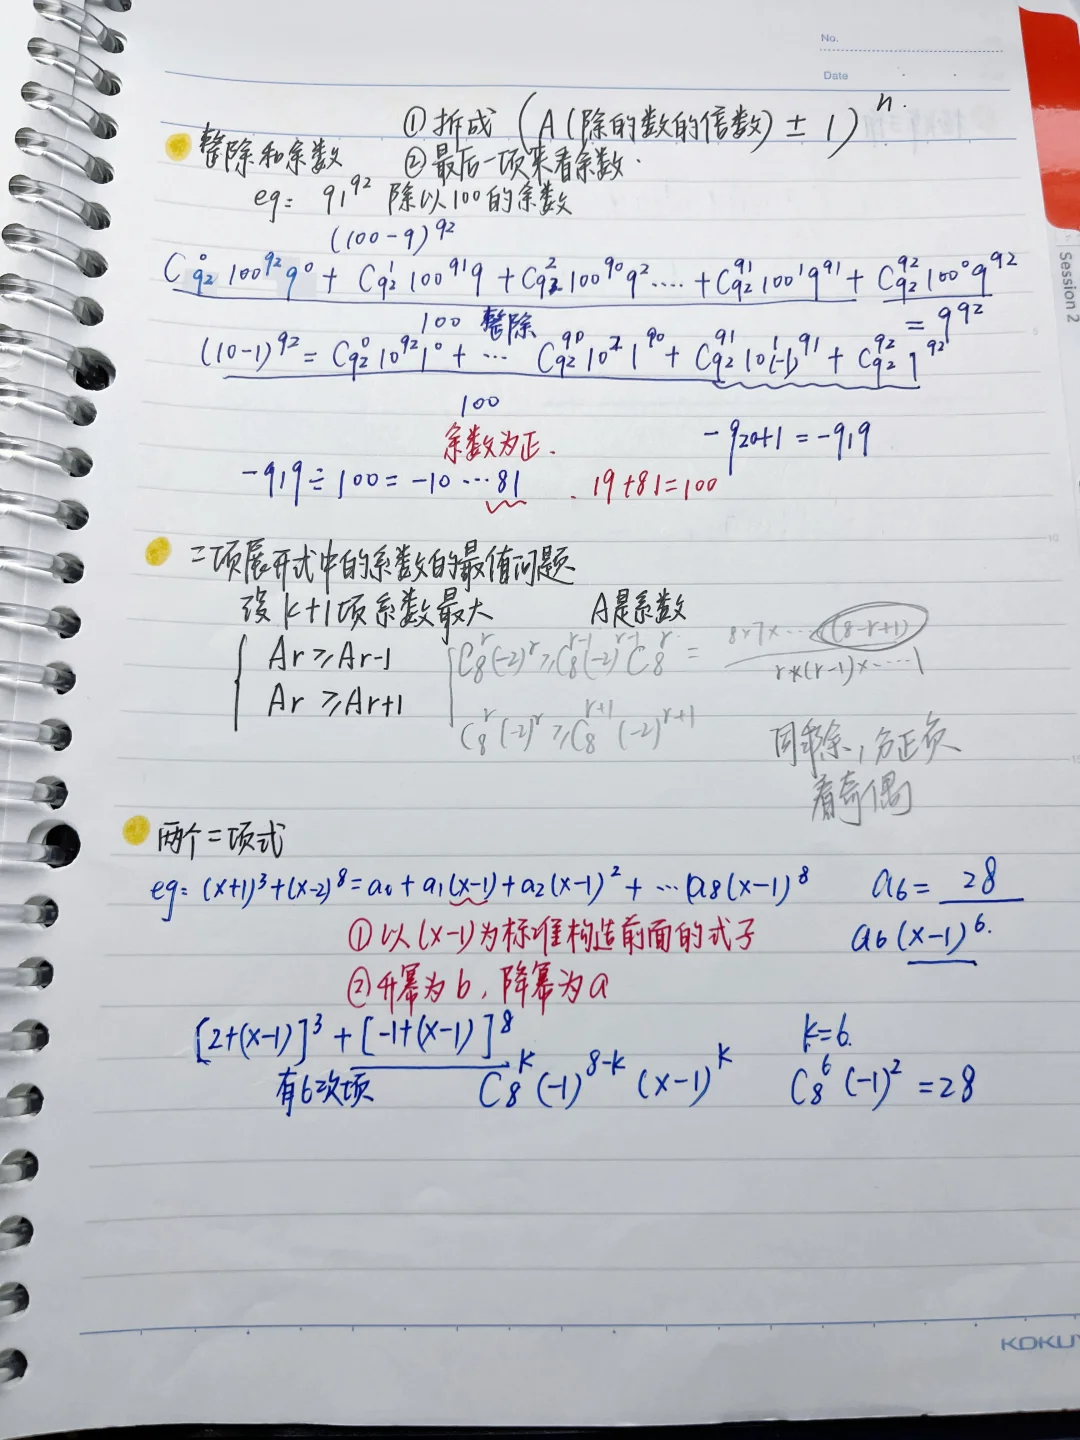 No.
Date
① 拆成 (A(除的数的倍数) ± 1)ⁿ.
整除和余数 ② 最后一项来看余数.
eg: 91⁹² 除以100的余数
(100-9)⁹²
C₉₂⁰ 100⁹² 9⁰ + C₉₂¹ 100⁹¹ 9 + C₉₂² 100⁹⁰ 9² .... + C₉₂⁹¹ 100¹ 9⁹¹ + C₉₂⁹² 100⁰ 9⁹²
100 整除 = 9⁹²
(10-1)⁹² = C₉₂⁰ 10⁹² 1⁰ + ... C₉₂⁹⁰ 10² 1⁹⁰ + C₉₂⁹¹ 10¹ (-1)⁹¹ + C₉₂⁹² 1⁹²
100
余数为正. -920+1 = -919
-919 ÷ 100 = -10 ... 81 . 19+81=100
二项展开式中的系数的最值问题
设 k+1项系数最大 A是系数
Ar ≥ Ar-1 C₈ʳ(-2)ʳ ≥ C₈ʳ⁻¹(-2)ʳ⁻¹ C₈ʳ = 8×7×...(8-r+1) / r×(r-1)×....1
Ar ≥ Ar+1 C₈ʳ(-2)ʳ ≥ C₈ʳ⁺¹(-2)ʳ⁺¹
同乘除, 分正负
看奇偶
两个二项式
eg: (x+1)³+(x-2)⁸ = a₀ + a₁(x-1) + a₂(x-1)² + ... a₈(x-1)⁸ a₆ = 28
① 以(x-1)为标准构造前面的式子 a₆(x-1)⁶.
② 升幂为b, 降幂为a
[2+(x-1)]³ + [-1+(x-1)]⁸ k=6.
有6次项 C₈ᵏ (-1)⁸⁻ᵏ (x-1)ᵏ C₈⁶ (-1)² = 28
Session 2
KOKUY